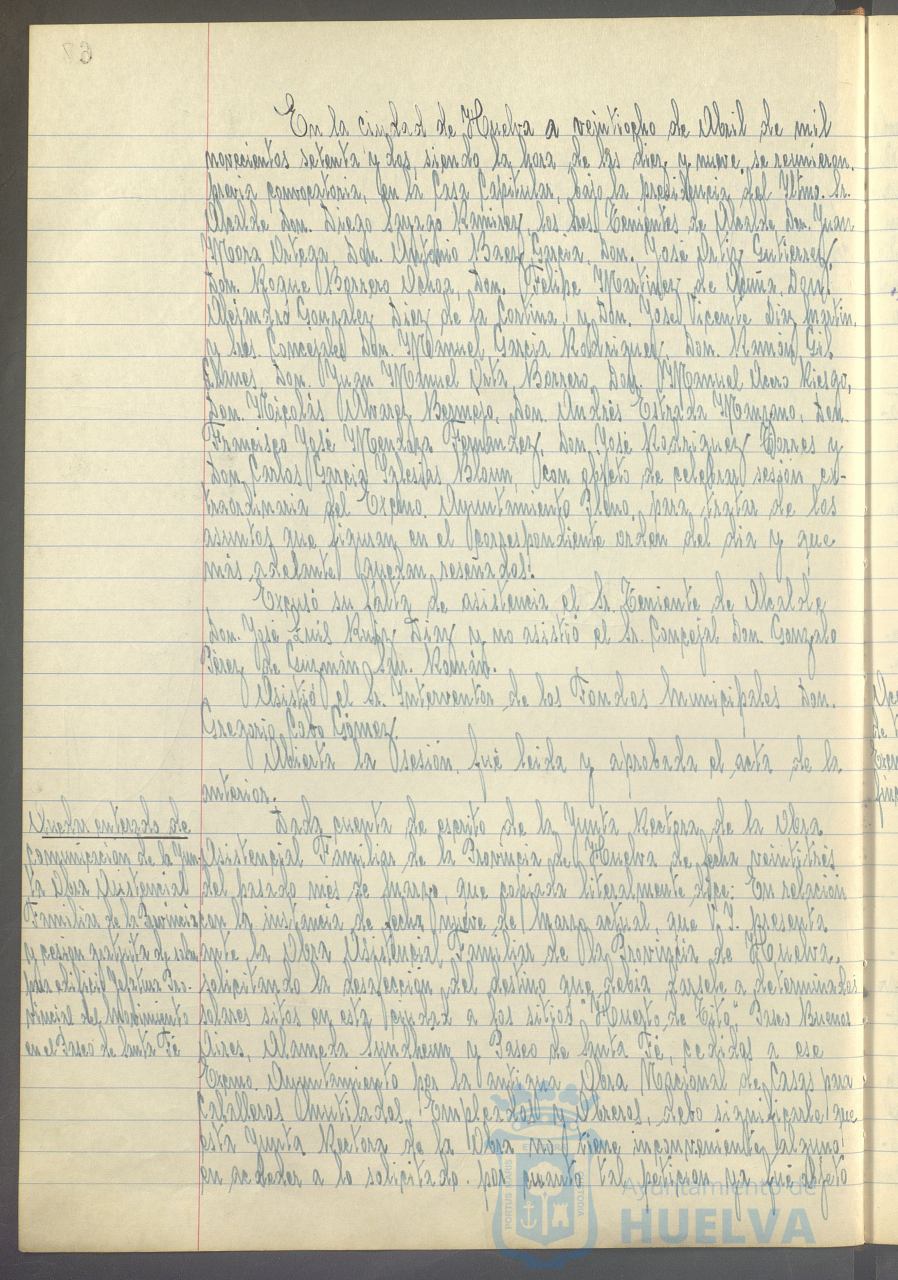 67
En la ciudad de Huelva a veintiocho de Abril de mil
novecientos setenta y dos, siendo la hora de las diez y nueve, se reunieron,
previa convocatoria, en la Casa Capitular, bajo la presidencia del Iltmo. Sr.
Alcalde Don Diego Sayago Ramirez, los Sres. Tenientes de Alcalde Don Juan
Mora Ortega, Don Antonio Baez Garcia, Don José Ortiz Gutierrez,
Don Roque Barrero Ochoa, Don Felipe Martinez de Acuña, Don
Alejandro Gonzalez Diez de la Cortina y Don José Vicente Diaz Martin,
y Sres. Concejales Don Manuel Garcia Rodriguez, Don Ramón Gil
Don Juan Manuel Orta Borrero, Don Manuel Acero Riesgo,
Don Nicolás Alvarez Bermejo, Don Andrés Estrada Manzano, Don
Francisco José Mendoza Fernandez, Don José Rodriguez Torres y
Don Carlos Garcia Iglesias con objeto de celebrar sesión ex-
traordinaria del Excmo. Ayuntamiento Pleno, para tratar de los
asuntos que figuran en el correspondiente orden del dia y que
más adelante quedan reseñados.
Excusó su falta de asistencia el Sr. Teniente de Alcalde
Don José Luis Ruiz Diaz y no asistió el Sr. Concejal Don Gonzalo
Pérez de Guzmán San Román.
Asistió el Sr. Interventor de los Fondos Municipales Don
Gregorio Cabo Gómez.
Abierta la sesión, fué leida y aprobada el acta de la
anterior.
Quedar enterado de
comunicación de la Jun-
ta Obra Asistencial
Familiar de la Provincia
y cesion gratuita de
para edificio Jefatura Pro-
vincial del Movimiento
en el Paseo de Santa Fé
Dada cuenta de escrito de la Junta Rectora de la Obra
Asistencial Familiar de la Provincia de Huelva de fecha veintitrés
del pasado mes de marzo, que copiada literalmente dice: En relación
con la instancia de fecha nueve de Marzo actual, que V.I. presenta
ante la Obra Asistencial Familiar de la Provincia de Huelva,
solicitando la desafección del destino que debia darsele a determinados
solares sitos en esta ciudad a los sitios "Huerto de Paseo Buenos
Aires, Alameda Sundheim y Paseo de Santa Fé, cedidas a ese
Excmo. Ayuntamiento por la antigua Obra Nacional de Casas para
Caballeros Mutilados, Empleados y Obreros, debo significarle que
esta Junta Rectora de la Obra no tiene inconveniente alguno
en acceder a lo solicitado por cuanto tal peticion ya fué objeto
PORTUS MARIS
CUSTODIA
Ayuntamiento de
HUELVA